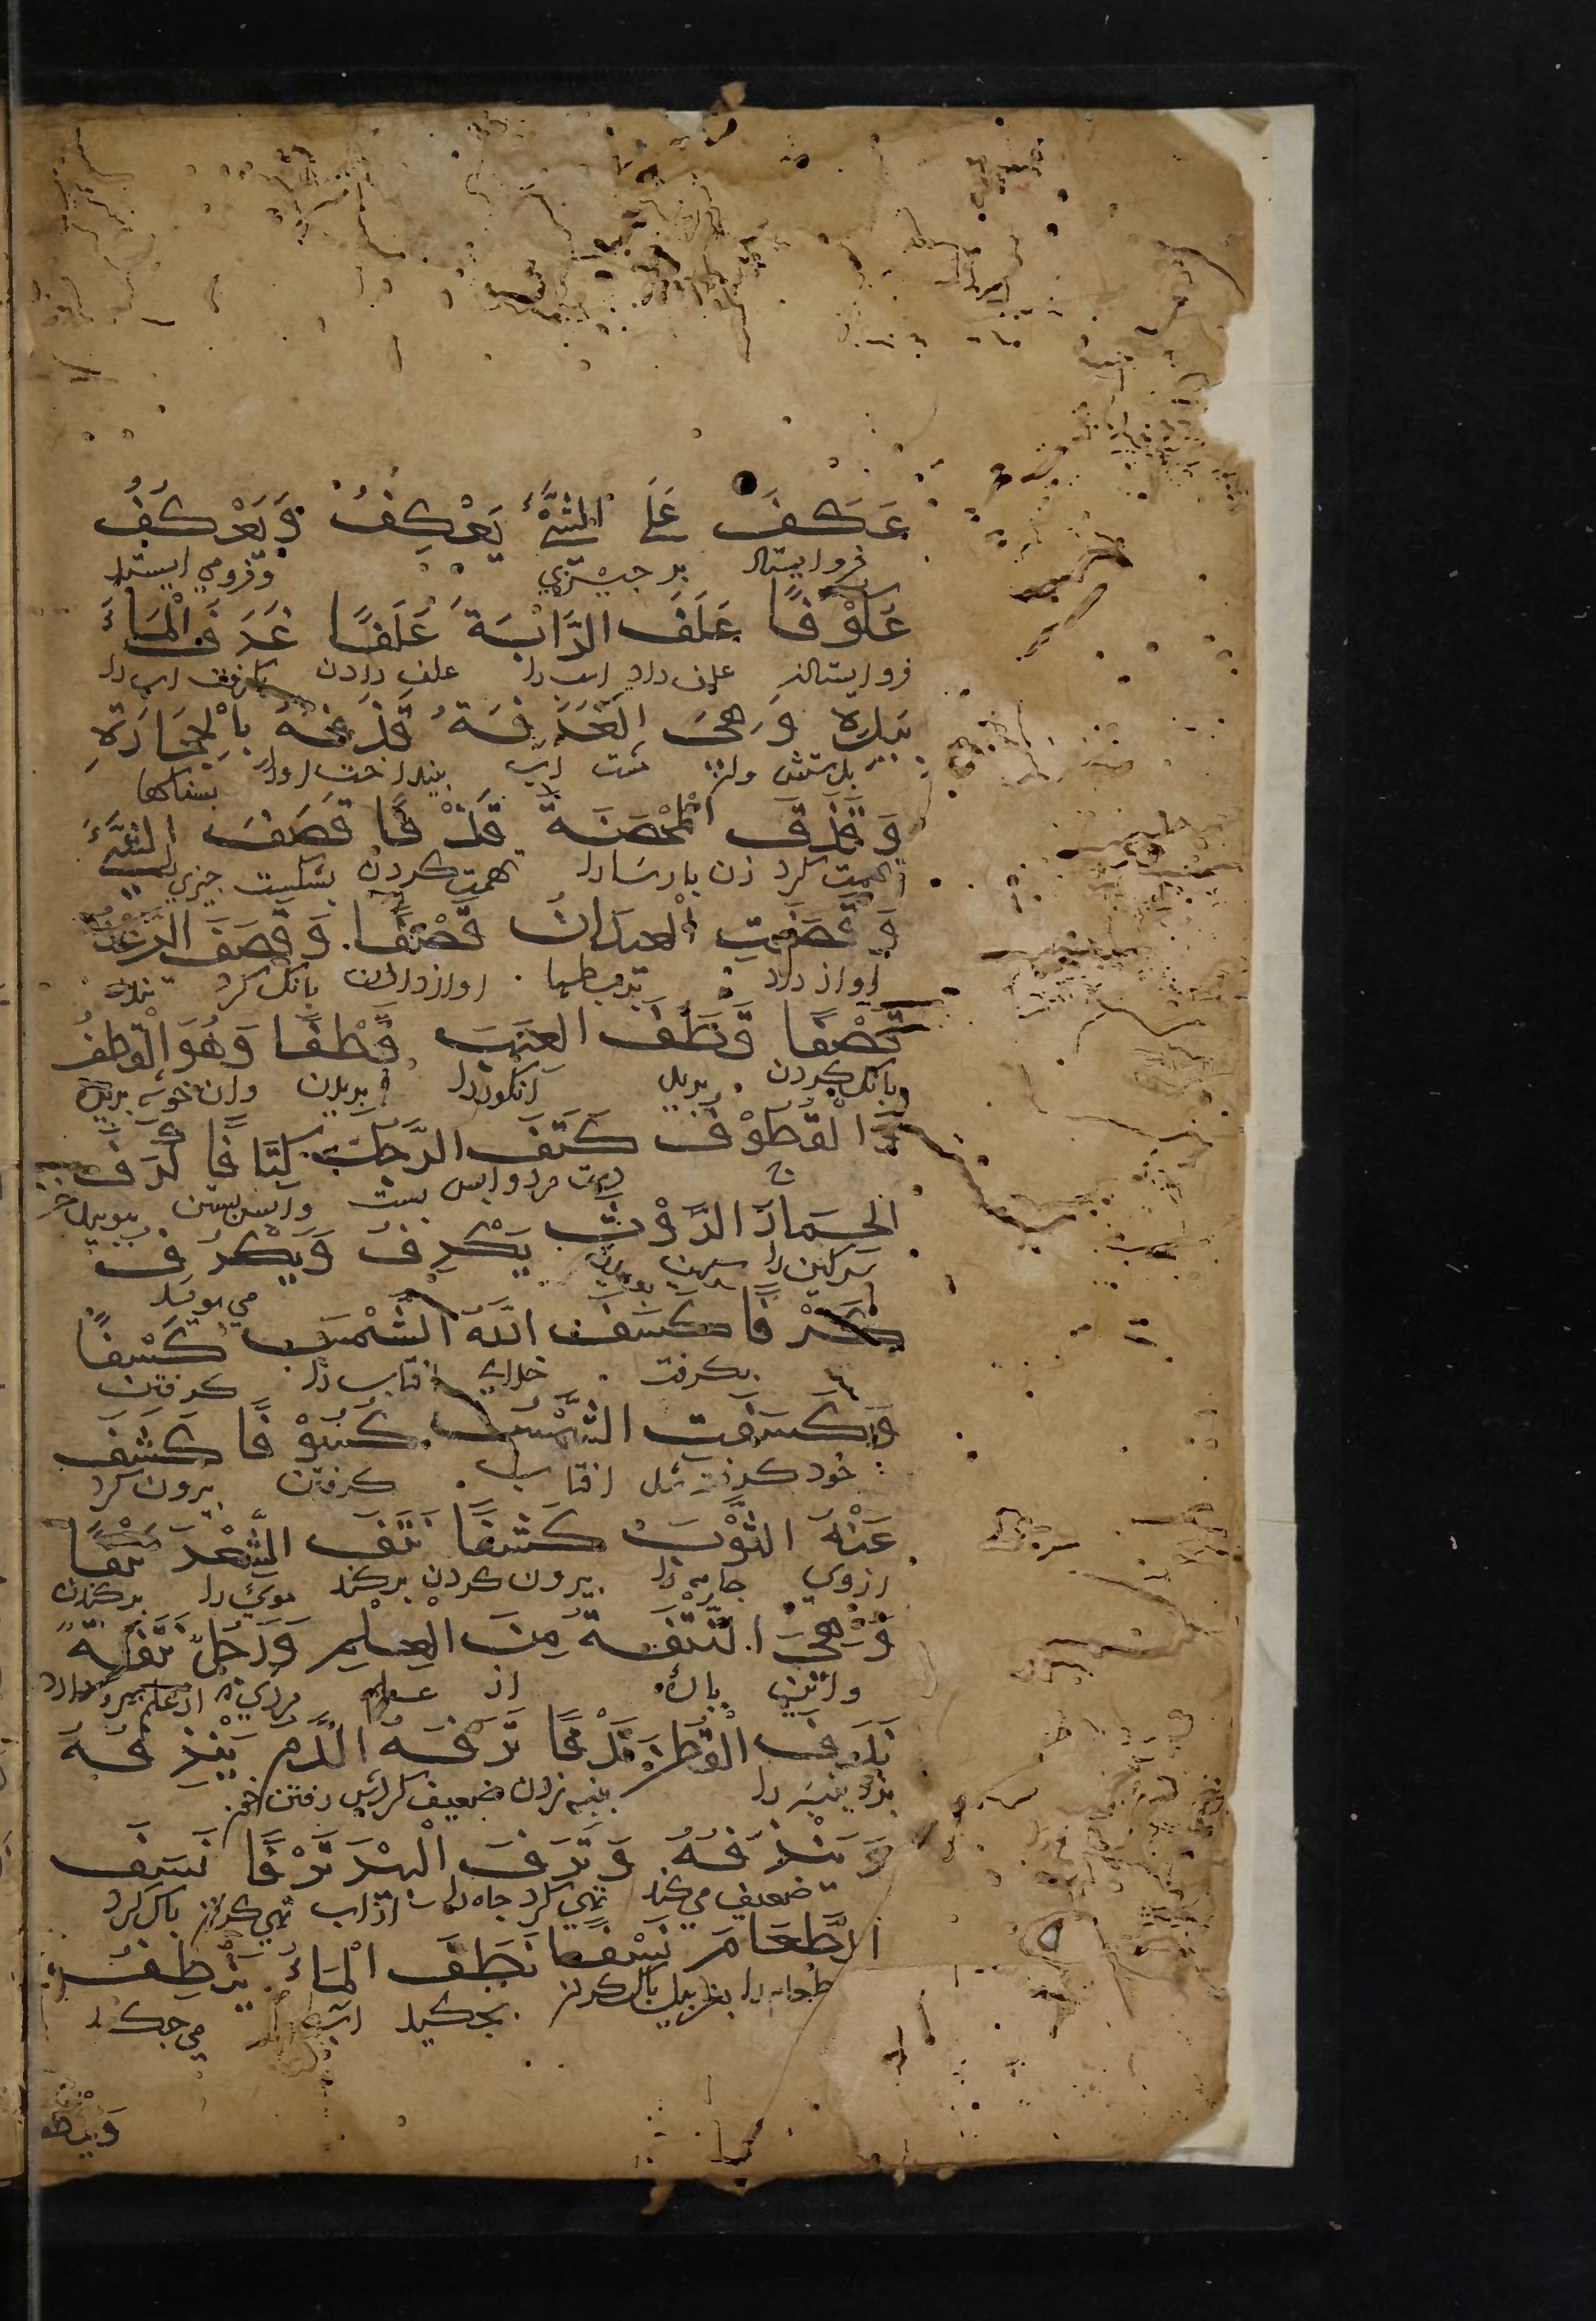 عَكَفَ عَلَى الشَّيْءِ يَعْكِفُ وَيَعْكُفُ
فرو ایستاد بر چیزی وفرومی ایستد
عُكُوْفًا عَلَفَ الدَّابَّةَ عَلَفًا غَرَفَ الْمَاءَ
فرو ایستادن علف داد را علف دادن بكرفت اب را
بِيَدِهِ وَهِيَ الْغُرْفَةُ قَذَفَهُ بِالْحِجَارَةِ
بدستش اب بینداخت اورا بسنكها
وَقَذَفَ الْمُحْصَنَةَ قَذْفًا قَصَفَ الشَّيْءَ
تهمت كرد زن پارسارا تهمت كردن بشكست چیزی
وَقَصَفَتِ الْعِيدَانُ قَصْفًا وَقَصَفَ الرَّعْدُ
اواز داد بربطها اواز دادن بانك كرد
قَصْفًا قَطَفَ الْعِنَبَ قَطْفًا وَهُوَ الْقِطْفُ
بانك كردن ببرید انكوررا بریدن وان خوشه
وَالْقُطُوْفُ كَتَفَ الرَّجُلَ كِتَافًا كَرَفَ
ج دست مرد واپس بست واپس بستن ببویید
الْحِمَارُ الرَّوْثَ يَكْرِفُ وَيَكْرُفُ
سركین را می بوید
كَرْفًا كَسَفَ اللّٰهُ الشَّمْسَ كَسْفًا
بكرفت خدای افتاب را كرفتن
وَكَسَفَتِ الشَّمْسُ كُسُوْفًا كَشَفَ
خود كرفته شد افتاب كرفتن برون كرد
عَنْهُ الثَّوْبَ كَشْفًا نَتَفَ الشَّعْرَ نَتْفًا
ازوی جامه را برون كردن بركند موی را بركندن
وَهِيَ النُّتْفَةُ مِنَ الْعِلْمِ وَرَجُلٌ نُتَفَةٌ
از علم مردی از علم
نَدَفَ الْقُطْنَ نَدْفًا نَزَفَهُ الدَّمُ يَنْزِفُهُ
بزد پنبه را پنبه زدن ضعیف كردش رفتن خون
وَيَنْزُفُهُ وَنَزَفَ الْبِئْرَ نَزْفًا نَسَفَ
ضعیف می كند تهی كرد چاه را از اب تهی كردن پاك كرد
الطَّعَامَ نَسْفًا نَطَفَ الْمَاءُ يَنْطِفُ
طعام را بغربیل پاك كردن بچكید اب می چكد
وَيَنْطُ